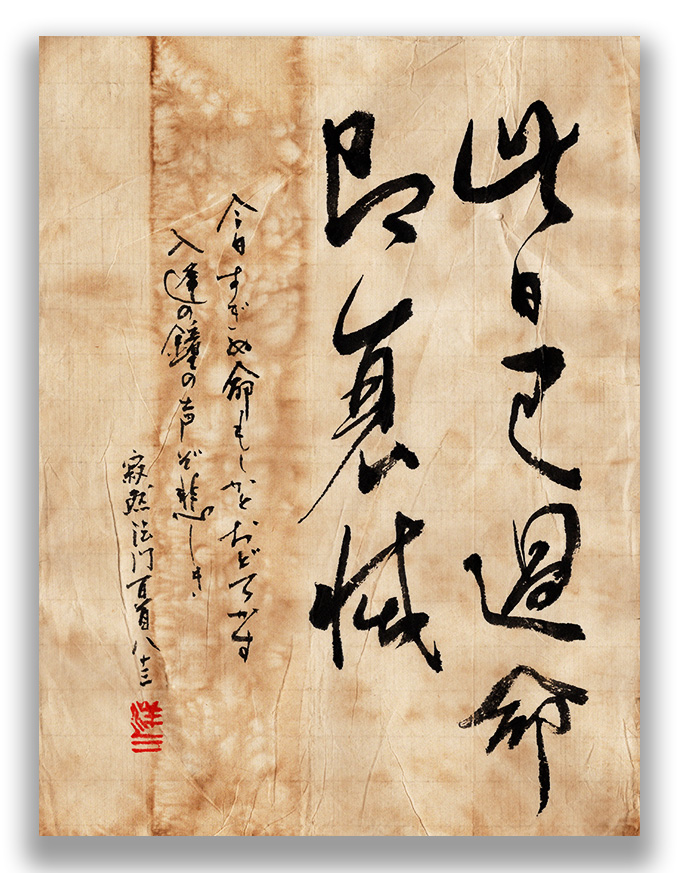 此日已過命
即衰滅
今日すぎぬ命もしかとおどろかす
入逢の鐘の声ぞ悲しき
寂然法門百首八十三
洋三